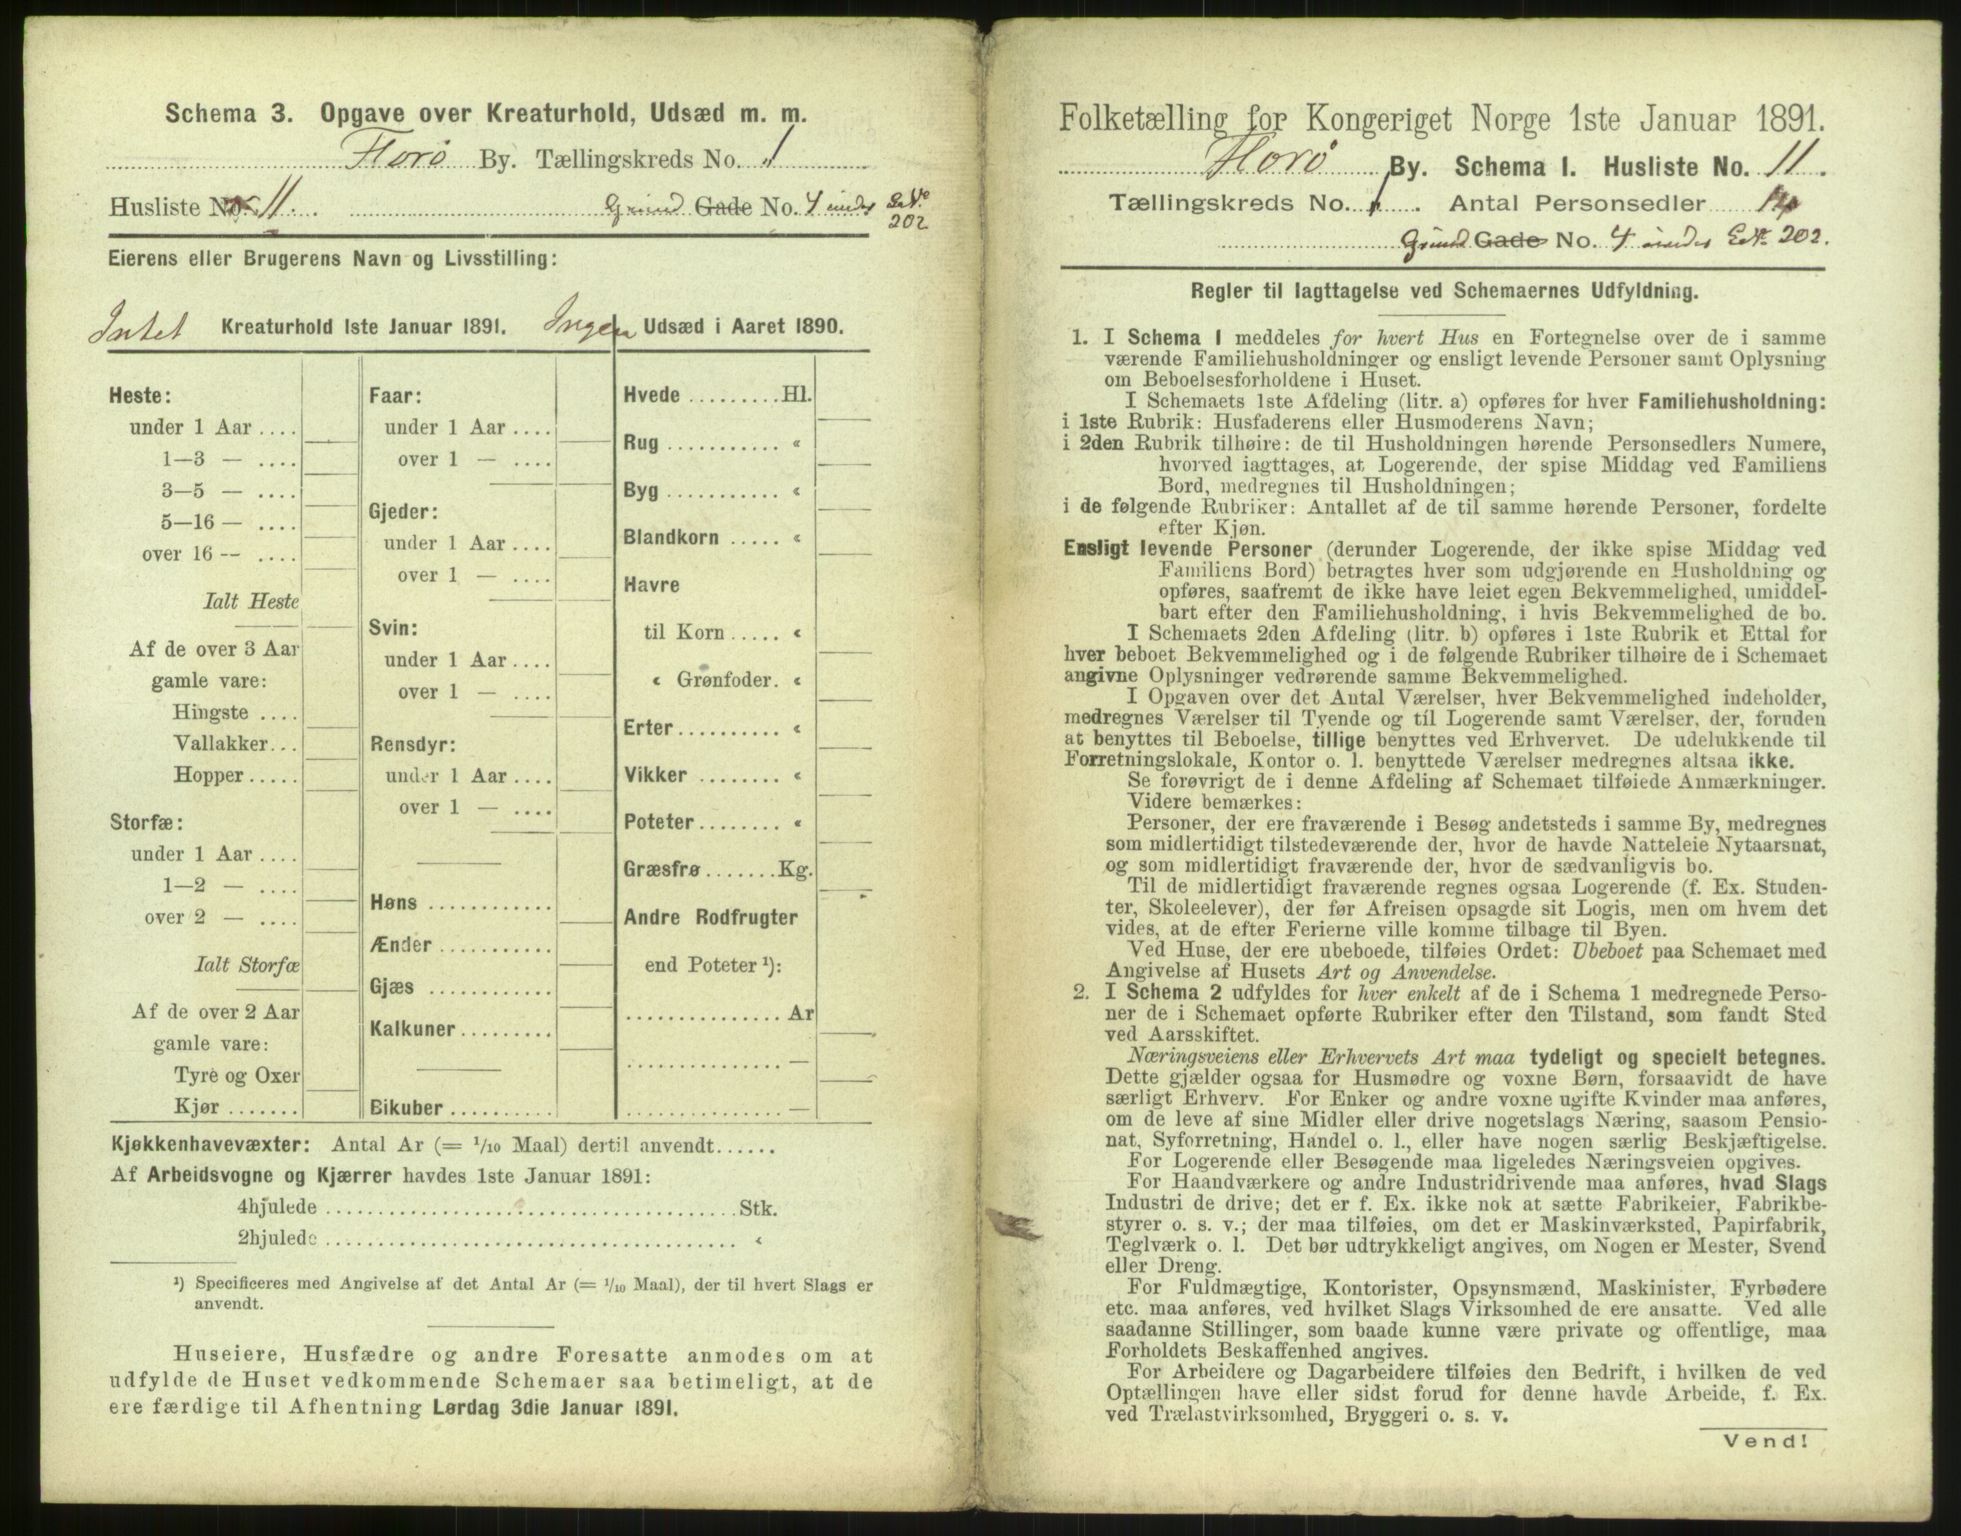 Schema 3. Opgave over Kreaturhold, Udsæd m. m.
Florø By. Tællingskreds No. 1
Husliste No. 11. Grund Gade No. 4 under
202
Eierens eller Brugerens Navn og Livsstilling:
Intet Kreaturhold 1ste Januar 1891. Ingen Udsæd i Aaret 1890.
Heste:
under 1 Aar ....
1—3 — ....
3—5 — ....
5—16 — ....
over 16 — ....
Ialt Heste
Af de over 3 Aar
gamle vare:
Hingste ....
Vallakker...
Hopper.....
Storfæ:
under 1 Aar ....
1—2 — ....
over 2 — ....
Ialt Storfæ
Af de over 2 Aar
gamle vare:
Tyre og Oxer
Kjør.......
Faar:
under 1 Aar ....
over 1 — ....
Gjeder:
under 1 Aar ....
over 1 — ....
Svin:
under 1 Aar ....
over 1 — ....
Rensdyr:
under 1 Aar ....
over 1 — ....
Høns ............
Ænder ...........
Gjæs ............
Kalkuner.........
Bikuber..........
Hvede .........Hl.
Rug ........... «
Byg ........... «
Blandkorn ..... «
Havre
til Korn ..... «
« Grønfoder. «
Erter.......... «
Vikker ........ «
Poteter........ «
Græsfrø.......Kg.
Andre Rodfrugter
end Poteter ¹):
............... Ar
............... —
............... —
Kjøkkenhavevæxter: Antal Ar (= 1/10 Maal) dertil anvendt......
Af Arbeidsvogne og Kjærrer havdes 1ste Januar 1891:
4hjulede ....................................... Stk.
2hjulede ....................................... «
¹) Specificeres med Angivelse af det Antal Ar (= 1/10 Maal), der til hvert Slags er
anvendt.
Huseiere, Husfædre og andre Foresatte anmodes om at
udfylde de Huset vedkommende Schemaer saa betimeligt, at de
ere færdige til Afhentning Lørdag 3die Januar 1891.
Folketælling for Kongeriget Norge 1ste Januar 1891.
Florø By. Schema I. Husliste No. 11.
Tællingskreds No. 1. Antal Personsedler
Grund Gade No. 4 under 202.
Regler til Iagttagelse ved Schemaernes Udfyldning.
1. I Schema 1 meddeles for hvert Hus en Fortegnelse over de i samme
værende Familiehusholdninger og ensligt levende Personer samt Oplysning
om Beboelsesforholdene i Huset.
I Schemaets 1ste Afdeling (litr. a) opføres for hver Familiehusholdning:
i 1ste Rubrik: Husfaderens eller Husmoderens Navn;
i 2den Rubrik tilhøire: de til Husholdningen hørende Personsedlers Numere,
hvorved iagttages, at Logerende, der spise Middag ved Familiens
Bord, medregnes til Husholdningen;
i de følgende Rubriker: Antallet af de til samme hørende Personer, fordelte
efter Kjøn.
Ensligt levende Personer (derunder Logerende, der ikke spise Middag ved
Familiens Bord) betragtes hver som udgjørende en Husholdning og
opføres, saafremt de ikke have leiet egen Bekvemmelighed, umiddel-
bart efter den Familiehusholdning, i hvis Bekvemmelighed de bo.
I Schemaets 2den Afdeling (litr. b) opføres i 1ste Rubrik et Ettal for
hver beboet Bekvemmelighed og i de følgende Rubriker tilhøire de i Schemaet
angivne Oplysninger vedrørende samme Bekvemmelighed.
I Opgaven over det Antal Værelser, hver Bekvemmelighed indeholder,
medregnes Værelser til Tyende og til Logerende samt Værelser, der, foruden
at benyttes til Beboelse, tillige benyttes ved Erhvervet. De udelukkende til
Forretningslokale, Kontor o. l. benyttede Værelser medregnes altsaa ikke.
Se forøvrigt de i denne Afdeling af Schemaet tilføiede Anmærkninger.
Videre bemærkes:
Personer, der ere fraværende i Besøg andetsteds i samme By, medregnes
som midlertidigt tilstedeværende der, hvor de havde Natteleie Nytaarsnat,
og som midlertidigt fraværende der, hvor de sædvanligvis bo.
Til de midlertidigt fraværende regnes ogsaa Logerende (f. Ex. Studen-
ter, Skoleelever), der før Afreisen opsagde sit Logis, men om hvem det
vides, at de efter Ferierne ville komme tilbage til Byen.
Ved Huse, der ere ubeboede, tilføies Ordet: Ubeboet paa Schemaet med
Angivelse af Husets Art og Anvendelse.
2. I Schema 2 udfyldes for hver enkelt af de i Schema 1 medregnede Perso-
ner de i Schemaet opførte Rubriker efter den Tilstand, som fandt Sted
ved Aarsskiftet.
Næringsveiens eller Erhvervets Art maa tydeligt og specielt betegnes.
Dette gjælder ogsaa for Husmødre og voxne Børn, forsaavidt de have
særligt Erhverv. For Enker og andre voxne ugifte Kvinder maa anføres,
om de leve af sine Midler eller drive nogetslags Næring, saasom Pensio-
nat, Syforretning, Handel o. l., eller have nogen særlig Beskjæftigelse.
For Logerende eller Besøgende maa ligeledes Næringsveien opgives.
For Haandværkere og andre Industridrivende maa anføres, hvad Slags
Industri de drive; det er f. Ex. ikke nok at sætte Fabrikeier, Fabrikbe-
styrer o. s. v.; der maa tilføies, om det er Maskinværksted, Papirfabrik,
Teglværk o. l. Det bør udtrykkeligt angives, om Nogen er Mester, Svend
eller Dreng.
For Fuldmægtige, Kontorister, Opsynsmænd, Maskinister, Fyrbødere
etc. maa anføres, ved hvilket Slags Virksomhed de ere ansatte. Ved alle
saadanne Stillinger, som baade kunne være private og offentlige, maa
Forholdets Beskaffenhed angives.
For Arbeidere og Dagarbeidere tilføies den Bedrift, i hvilken de ved
Optællingen have eller sidst forud for denne havde Arbeide, f. Ex.
ved Trælastvirksomhed, Bryggeri o. s. v.
Vend!